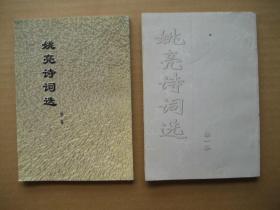 姚亮诗词选
姚亮诗词选